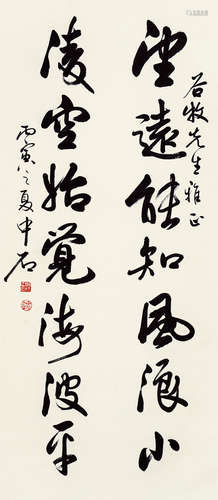 谷牧先生雅正
望远能知风浪小
凌空始觉海波平
丙寅之夏中石